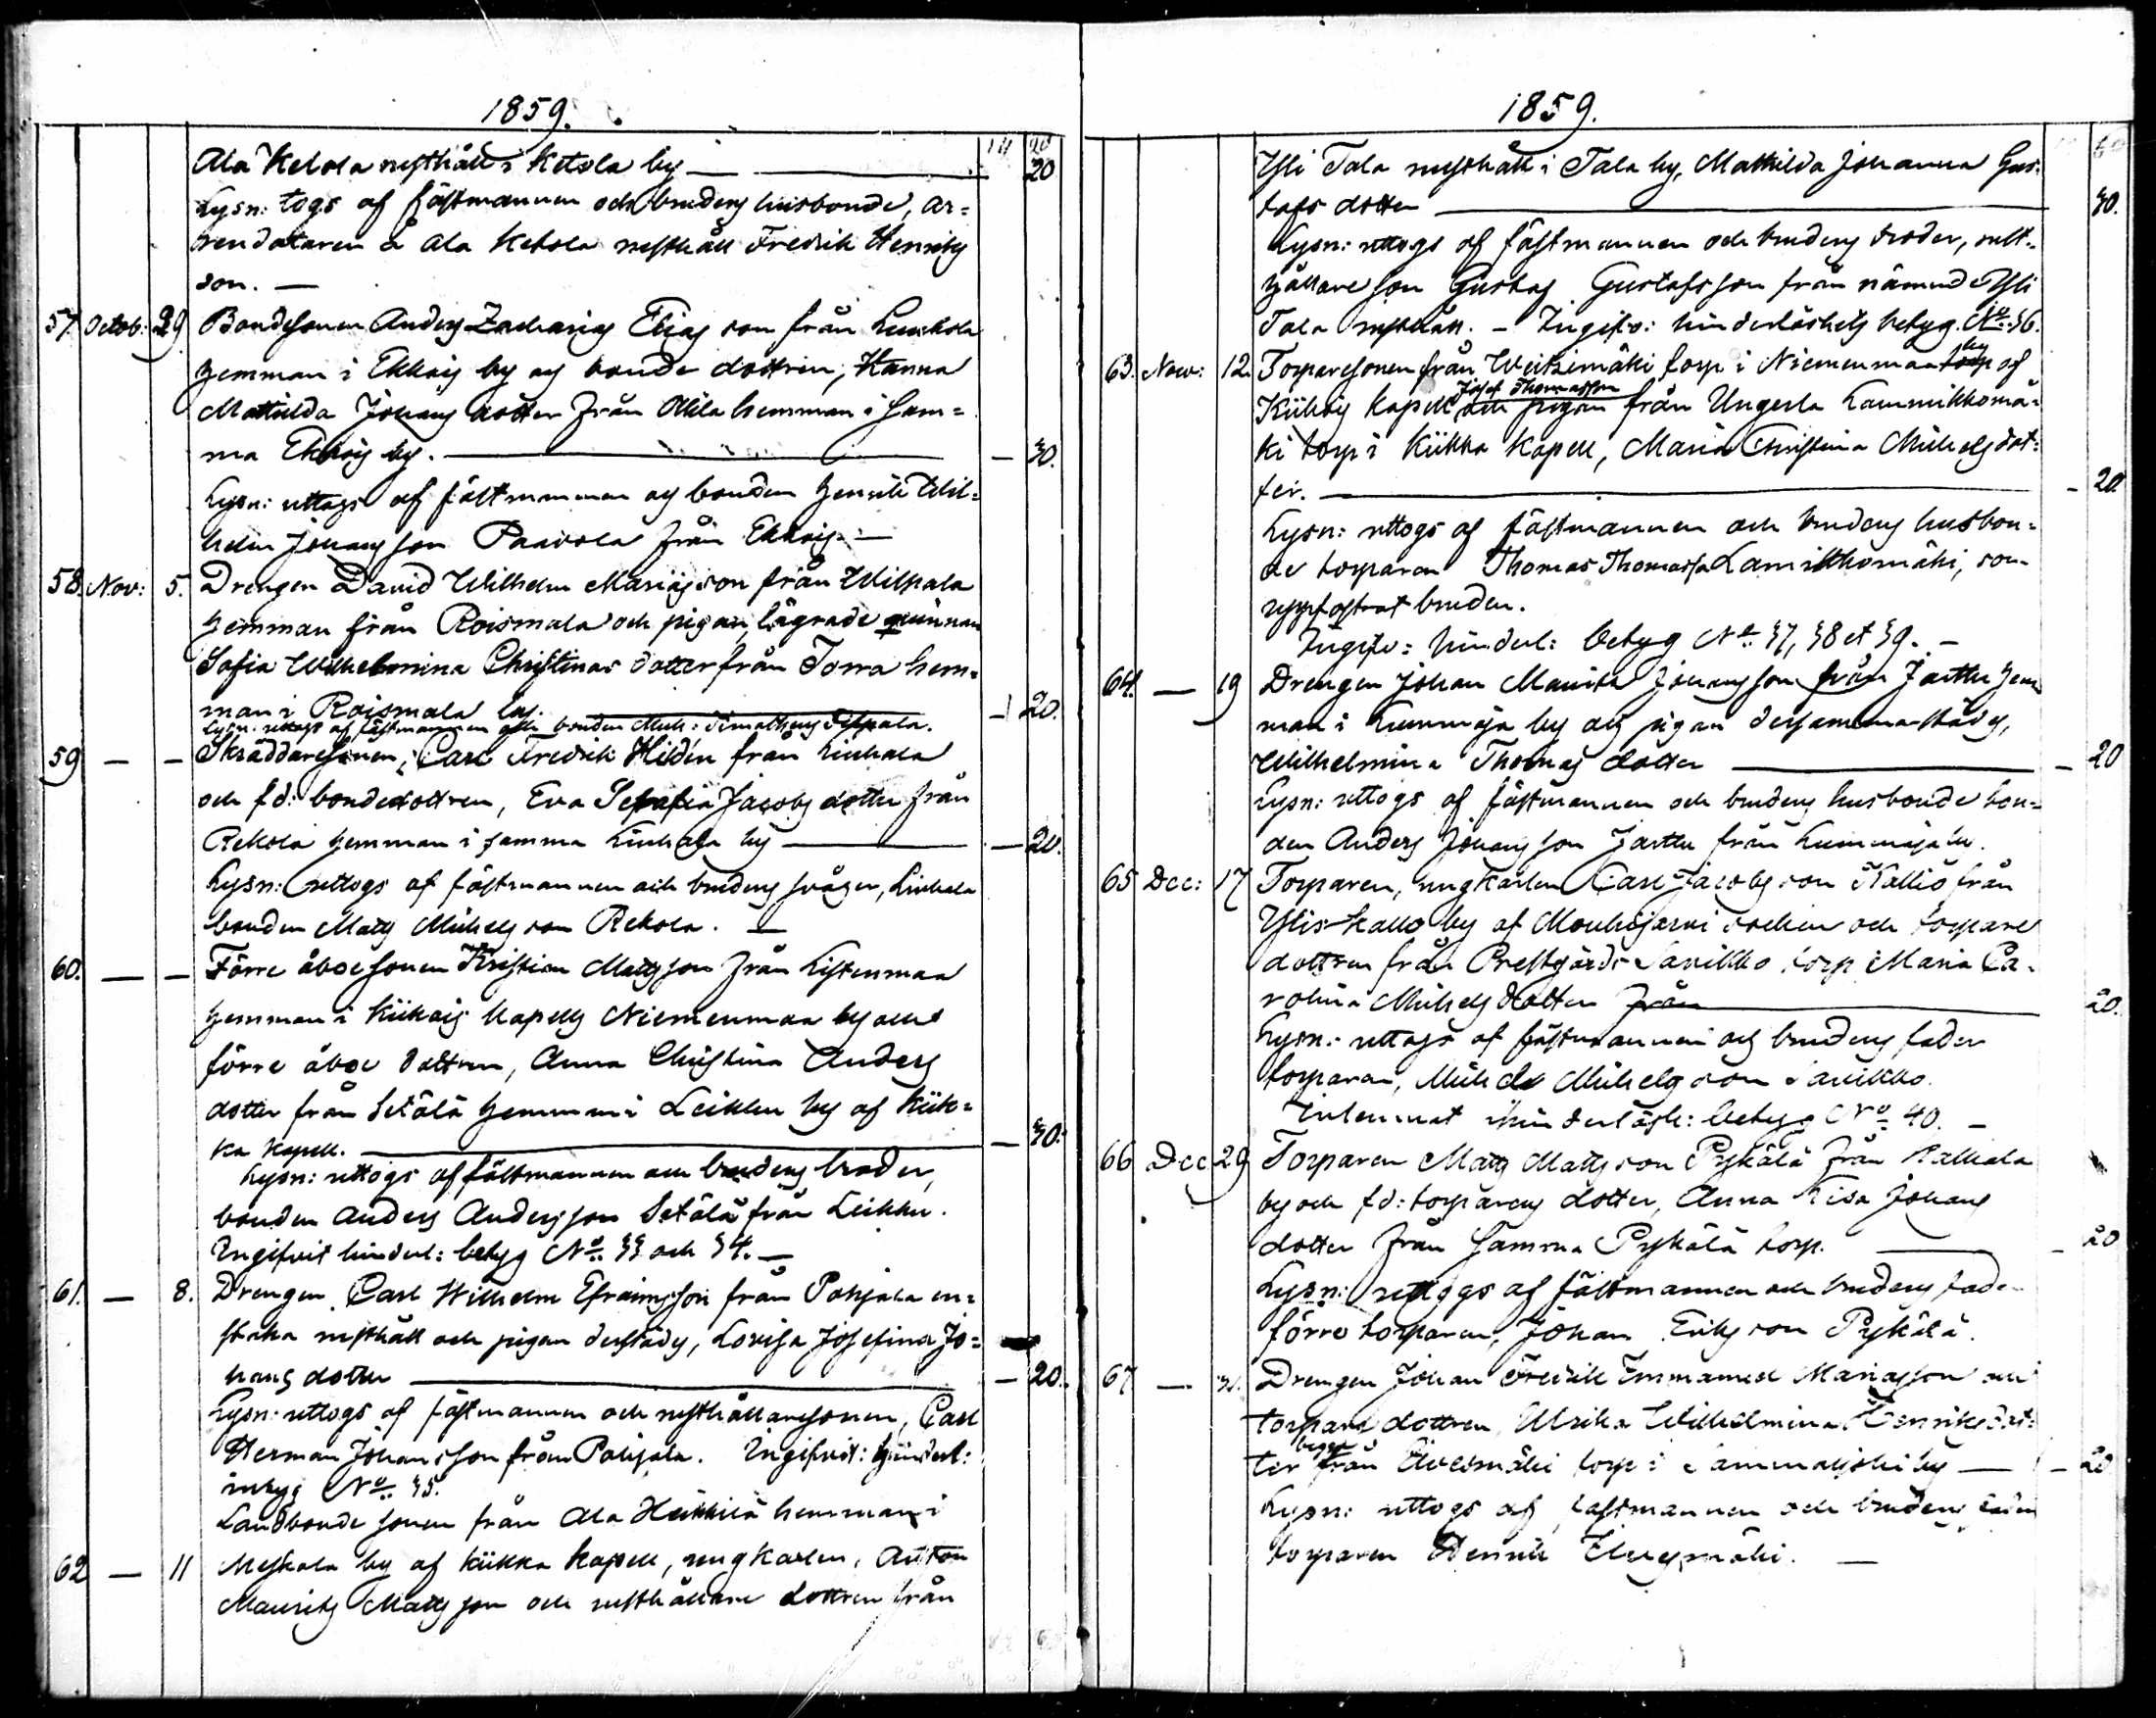 1859.
Ala Ketola rusthåll i Ketola by — 20
Lysn: togs af fästmannen och brudens husbonde, ar=
rendatoren å Ala Ketola rusthåll Fredrik Henriks
son. —
57. Octob: 29. Bondesonen Anders Zacharias Elias son från
hemman i Ekkois by och bonde dottren, Hanna
Mathilda Johans dotter från Ollila hemman i sam=
ma Ekkois by. — 30.
Lysn: uttogs af fästmannen och bonden Henrik Wil=
helm Johansson Paavola från Ekkois. —
58. Nov: 5. Drengen David Wilhelm Mariæson från
hemman från Roismala och pigan, lägrade qvinnan
Sofia Wilhelmina Christinas dotter från Torra hem=
man i Roismala by. — 20.
Lysn: uttogs af fästmannen och bonden
59 — — Skräddaresonen, Carl Fredrik Hildén från Liuhala
och fd: bondedottren, Eva Jacobs dotter från
Rekola hemman i samma Liuhala by — 20.
Lysn: uttogs af fästmannen och brudens svåger, Liuhala
bonden Matts Michels son Rekola. —
60. — — Förre åboesonen Kristian Mattsson från
hemman i Kiikois kapells Niemenmaa by och
förre åboe dottren, Anna Christina Anders
dotter från Setälä hemman i Leikku by af Kiik=
ka kapell. — 30.
Lysn: uttogs af fästmannen och brudens broder,
bonden Anders Andersson Setälä från Leikku.
Ingifvit hinderl: betyg No 33 och 34. —
61. — 8. Drengen Carl Wilhelm Efraimsson från Pohjala en=
staka rusthåll och pigan derstädes, Lovisa Josefina Jo=
hans dotter — 20.
Lysn: uttogs af fästmannen och rusthållaresonen, Carl
Herman Johansson från Pohjala. Ingifvit: hinderl:
betyg No 35.
Landbonde sonen från Ala Heikkilä hemman i
62 — 11 Meskala by af Kiikka kapell, ungkarlen, Anton
Maurits Mattsson och rusthållare dottren från
1859.
Yli Tala rusthåll i Tala by, Mathilda Johanna Gus=
tafs dotter — 30.
Lysn: uttogs af fästmannen och brudens broder, rust=
hållare son Gustaf Gustafsson från nämnde Yli
Tala rusthåll. — Ingifv: hinderlöshets betyg. No 36.
63. Nov: 12. Torparesonen från Weitsimäki torp i Niemenmaa by af
Josef Thomasson
Kiikois kapell och pigan från Ungerla Lammikkomä=
ki torp i Kiikka kapell, Maria Christina Michels dot=
ter. — 20.
Lysn: uttogs af fästmannen och brudens husbon=
de torparen Thomas Thomasson Lamikkomäki, som
uppfostrat bruden.
Ingifv: hinderl: betyg No 37, 38 et 39. —
64. — 19 Drengen Johan Maurits Johansson från Jarttu hem
man i Lummaja by och pigan dersammastädes,
Wilhelmina Thomas dotter — 20
Lysn: uttogs af fästmannen och brudens husbonde bon=
den Anders Johansson Jarttu från Lummaja by.
65 Dec: 17 Torparen, ungkarlen Carl Jacobs son Kallio från
by af Mouhijärvi socken och torpare
dottren från Prestgårds Savikko torp Maria Ca=
rolina Michels dotter från — 20.
Lysn: uttogs af fästmannen och brudens fader
torparen, Michel Michelsson Savikko.
hinderlösh: betyg No 40. —
66 Dec 29 Torparen Matts Matts son Pykälä från
by och fd: torparens dotter, Anna Lisa Johans
dotter från samma Pykälä torp. — 20
Lysn: uttogs af fästmannen och brudens fader
förre torparen, Johan Eriks son Pykälä.
67 — Drengen Johan Fredrik Emmanuel Mariasson och
torpare dottren Ulrika Wilhelmina Henriks dot=
begge
ter från Elvesmäki torp i by — 20
Lysn: uttogs af fästmannen och brudens fader
torparen Henrik Elvesmäki. —